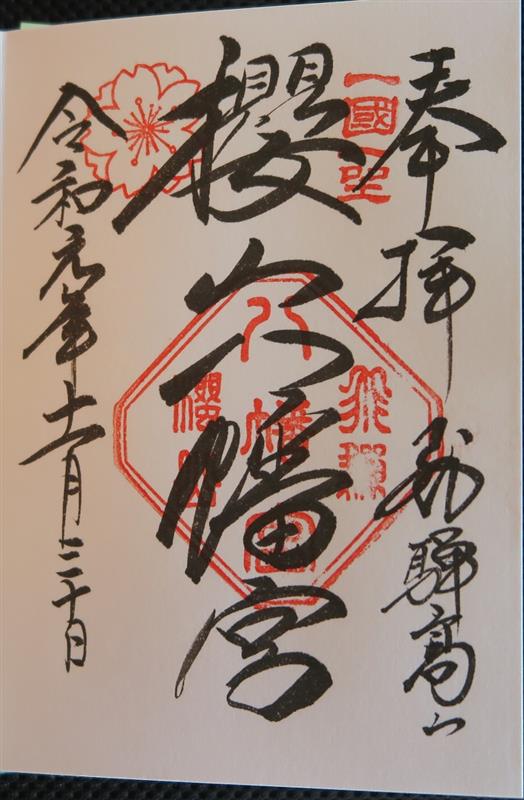 奉拝 飛驒高山
一國一社
櫻山八幡宮
飛驒
八幡宮
櫻山
令和元年十一月三十日